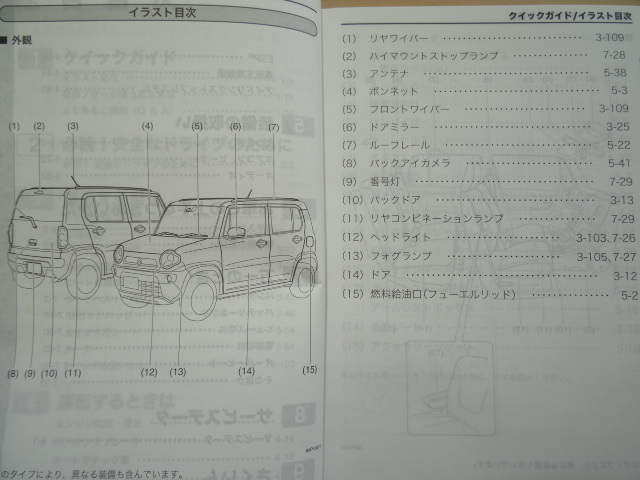 イラスト目次
■ 外観
(1) (2) (3) (4) (5) (6) (7)
(8) (9) (10) (11) (12) (13) (14) (15)
のタイプにより、異なる装備も含んでいます。
クイックガイド/イラスト目次
(1) リヤワイパー 3-109
(2) ハイマウントストップランプ 7-28
(3) アンテナ 5-38
(4) ボンネット 5-3
(5) フロントワイパー 3-109
(6) ドアミラー 3-25
(7) ルーフレール 5-22
(8) バックアイカメラ 5-41
(9) 番号灯 7-29
(10) バックドア 3-13
(11) リヤコンビネーションランプ 7-29
(12) ヘッドライト 3-103, 7-26
(13) フォグランプ 3-105, 7-27
(14) ドア 3-12
(15) 燃料給油口(フューエルリッド) 5-2